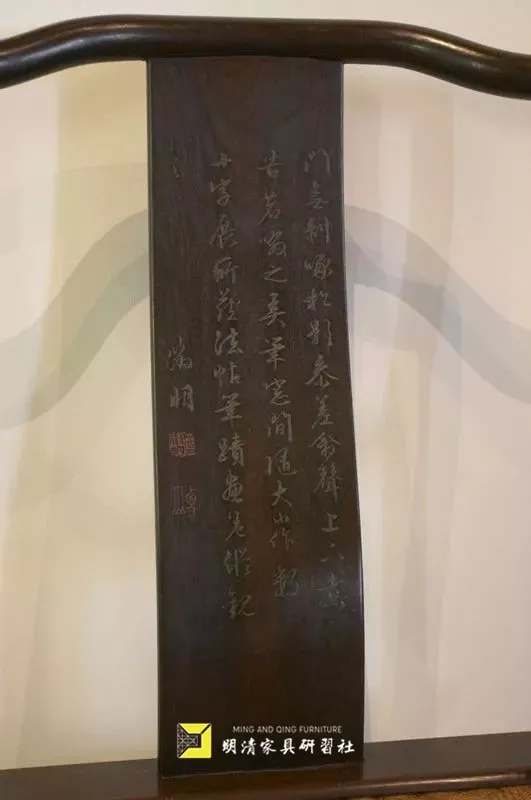 門無剝啄松影參差禽聲上下煮
苦茗啜之弄筆窗間隨大小作數
十字展所藏法帖筆蹟畫卷縱觀
之
徵明
MING AND QING FURNITURE
明清家具研習社